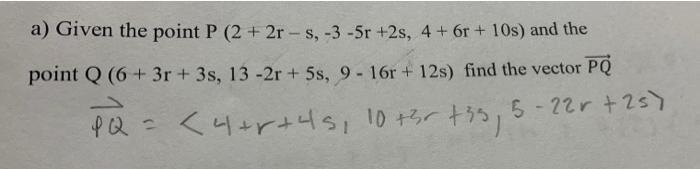 a) Given the point P (2 + 2r – s, -3 -5r +2s, 4 + 6r + 10s) and the
point Q (6 + 3r + 3s, 13 -2r + 5s, 9 - 16r + 12s) find the vector PQ
PQ = <4+r+4s, 10+3r+3s, 5-22r+2s>